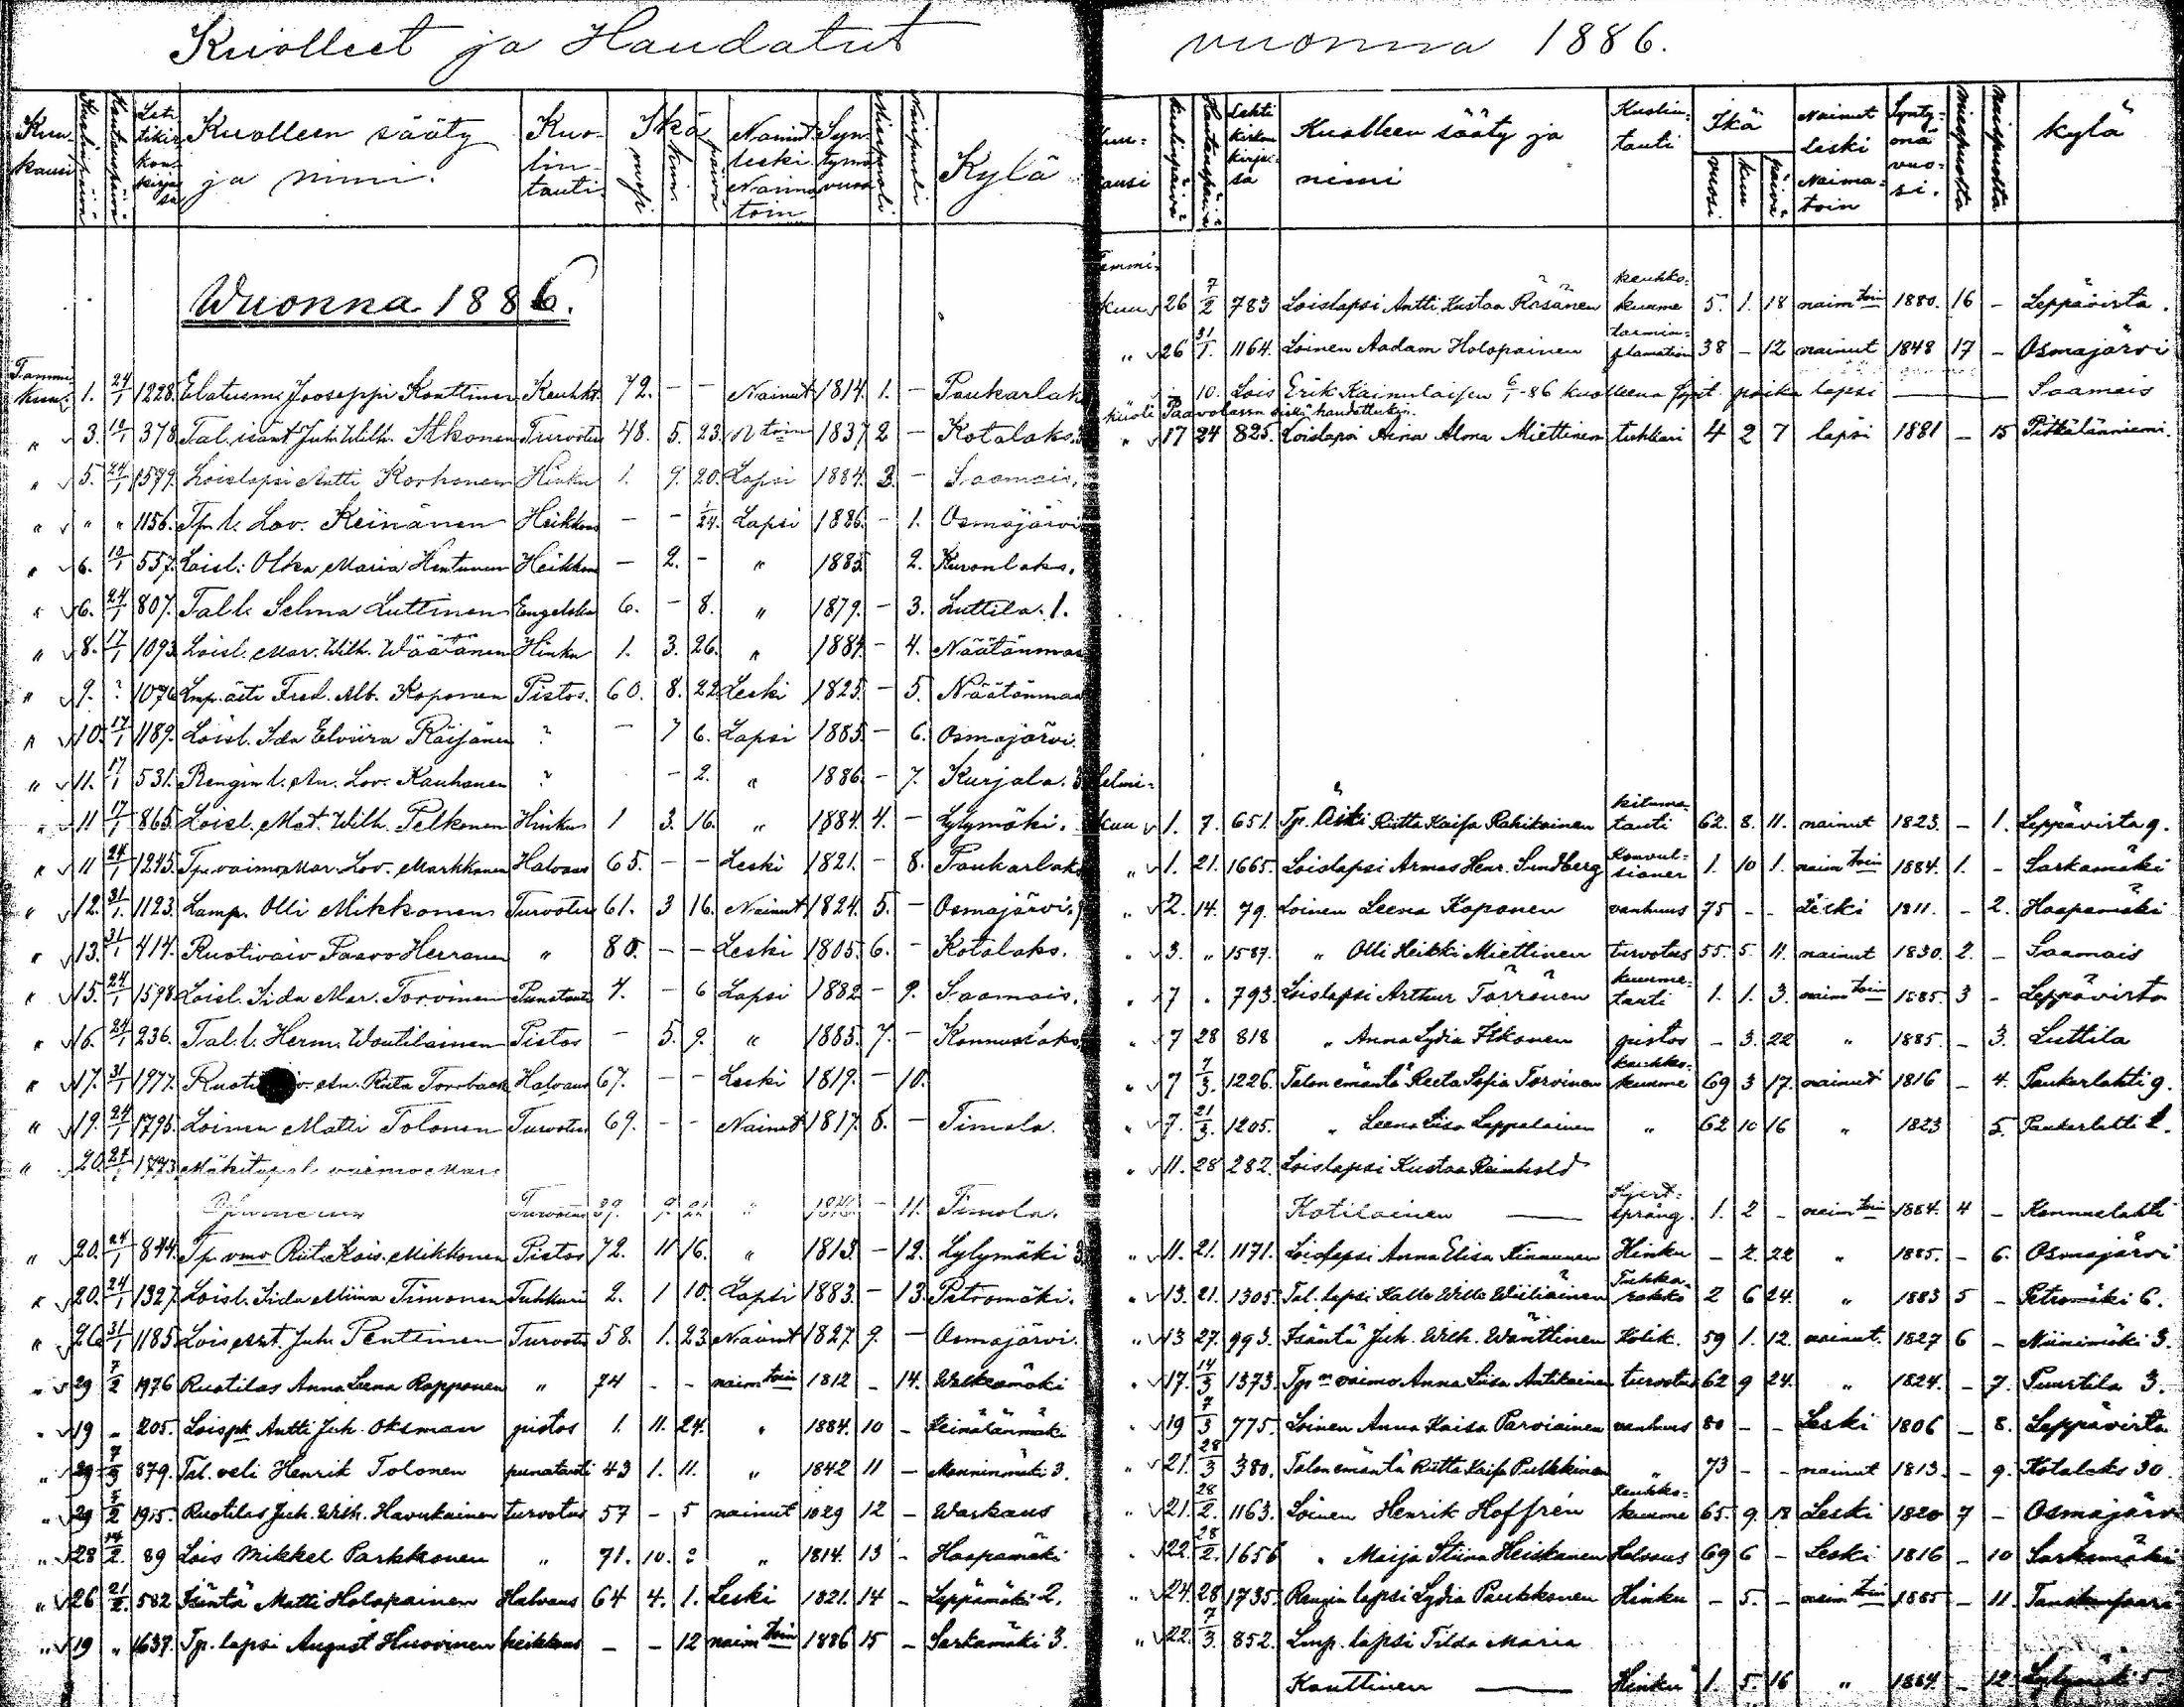 Kuolleet ja Haudatut
Kuu- kausi Kuolinpäivä Hautauspäivä Leh- tikir- kon- kirjas- sa Kuolleen sääty ja nimi. Kuo- lin- tauti Ikä vuosi kuu päivä Nainut leski Naima- toin Syn- tymä vuosi Miespuoli Naispuoli Kylä
Wuonna 1886.
Tammi-
kuu 1. 24/1 1228. Elatusm. Jooseppi Konttinen Keuhkt. 72. - - Nainut 1814. 1. - Paukarlaks
" 3. 378 Tal. isänt Juh. Wilh. Itkonen Turvotus 48. 5. 23. N toin 1837 2 - Kotalaks. 3
" 5. 24/1 1579. Loislapsi Antti Korhonen Hinku 1. 9. 20. Lapsi 1884. 3. - Saamais.
" " " 1156. Tpn l. Lov. Keinänen Heikkous - - 1/24. Lapsi 1886. - 1. Osmajärvi
" 6. 557. Loisl. Olka Maria Hentunen Heikkous - 2. - " 1885 2. Kuvonlaks.
" 6. 24/1 807. Tal l. Selma Luttinen Engelska 6. - 8. " 1879. - 3. Luttila. 1.
" 8. 17/1 1093. Loisl. Mar. Wilh. Wäätänen Hinku 1. 3. 26. " 1884. - 4. Näätänmaa
" 9. ? 1076 Lmp. äiti Fred. Alb. Koponen Pistos. 60. 8. 22 Leski 1825. - 5. Näätänmaa
" 10. 17/1 1189. Loisl. Ida Elviira Räisänen ? - 7 6. Lapsi 1885. - 6. Osmajärvi.
" 11. 17/1 531. Rengin l. An. Lov. Kauhanen ? - 2. " 1886. - 7. Kurjala. 3
" 11 17/1 865. Loisl. Mat. Wilh. Pelkonen Hinku 1 3. 16. " 1884. 4. - Lylymäki.
" 11 24/1 1245. Tp. vaimo Mar. Lov. Markkanen Halvaus 65. - - Leski 1821. - 8. Paukarlaks
" 12. 31/1 1123. Lamp. Olli Mikkonen Turvotus 61. 3 16. Nainut 1824. 5. - Osmajärvi. 9
" 13. 31/1 414. Ruotivaiv Paavo Herranen " 80. - - Leski 1805. 6. - Kotalaks.
" 15. 24/1 1598. Loisl. Iida Mar. Torvinen Punataut 4. - 6 Lapsi 1882 - 9. Saamais.
" 16. 24/1 236. Tal. l. Herm. Woutilainen Pistos - 5. 9. " 1885. 7. - Konnuslaks
" 17. 31/1 1977. An. Riita Halvaus 67. - - Leski 1819. - 10.
" 19. 24/1 1795. Loinen Matti Tolonen Turvotus 69. - - Nainut 1817. 8. - Timola.
" 20. 1773 vaimo
Turvotus 39. 9. 21. " - 11. Timola.
" 20. 24/1 844. Tp. vmo Riit. Kais. Mikkonen Pistos 72. 11 16. " 1813. - 12. Lylymäki 3
" 20. 24/1 1327. Loisl. Iida Miina Timonen Tuhkuri 2. 1 10. Lapsi 1883. - 13. Petromäki.
" 26 31/1 1185 Lois Juh. Penttinen Turvotus 58. 1. 23 Nainut 1827. 9. - Osmajärvi.
" 29 7/2 1976 Ruotilas Anna Leena Rapponen " 74 - - naim toin 1812 - 14. Walkeamäki
" 19 - 205. Loispk Antti Juh. Oksman pistos 1. 11. 24. " 1884. 10 - Heinälänmäki
" 29 7/3 879. Tal. veli Henrik Tolonen punatauti 43 1. 11. " 1842 11 - Manninmäki 3.
" 29 7/2 1915. Ruotilas Juh. Wilh. Havukainen turvotus 57 - 5 nainut 1829 12 - Warkaus
" 28 14/2 89 Lois Mikkel Parkkonen " 71. 10. ? " 1814. 13 - Haapamäki
" 26 21/2 582 Isäntä Matti Holopainen Halvaus 64 4. 1. Leski 1821. 14 - Leppämäki 2.
" 19 " 1637. Tp. lapsi August Huovinen heikkous - - 12 naim toin 1886 15 - Sarkamäki 3.
vuonna 1886.
Kuu- kausi kuolinpäivä Hautauspäivä Lehti kirkon kirjas- sa Kuolleen sääty ja nimi Kuolin- tauti Ikä vuosi kuu päivä Nainut leski Naima- toin Synty- mä vuo- si. miespuolta naispuolta kylä
Tammi-
kuu 26 7/2 783 Loislapsi Antti Kustaa Räsänen keuhko- kuume 5. 1. 18 naim toin 1880. 16 - Leppävirta.
" 26 31/1. 1164. Loinen Aadam Holopainen 38 - 12 nainut 1848 17 - Osmajärvi
10. Lois Erik Kainulaisen 6/1 -86 kuolleena synt. poika lapsi — Saamais
kuoli Paavolassa siellä haudattukin.
" 17 24 825. Loislapsi Aina Alma Miettinen tuhkari 4 2 7 lapsi 1881 - 15 Pitkälänniemi.
Helmi-
kuu 1. 7. 651. Tp. Äiti Riitta Kaisa Rahikainen kituma- tauti 62. 8. 11. nainut 1823. - 1. Leppävirta 9.
" 1. 21. 1665. Loislapsi Armas Henr. Sundberg Konvul- sioner 1. 10 1. naim toin 1884. 1. - Sarkamäki
" 2. 14. 79. Loinen Leena Koponen vanhuus 75 - - Leski 1811. - 2. Haapamäki
" 3. " 1587. " Olli Heikki Miettinen turvotus 55. 5. 11. nainut 1830. 2. - Saamais
" 7 " 793. Loislapsi Arthur Törrönen kuume- tauti 1. 1. 3. naim toin 1885. 3 - Leppävirta
" 7 28 818 " Anna Lydia Itkonen pistos - 3. 22 " 1885. - 3. Luttila
" 7 7/3. 1226. Talon emäntä Reeta Sofia Torvinen keuhko- kuume 69 3 17. nainut 1816 - 4. Paukarlahti 9.
" 7. 21/3. 1205. " Leena Liisa Leppalainen " 62 10 16 " 1823 5. Paukarlahti 2.
" 11. 28 282. Loislapsi Kustaa Reinhold
Kotilainen — Hjert- språng. 1. 2 - naim toin 1884. 4 - Konnuslahti
" 11. 21. 1171. Loislapsi Anna Elisa Kinnunen Hinku - 2. 22 " 1885. - 6. Osmajärvi
" 13. 21. 1305. Tal. lapsi Kalle Wille Wiiliäinen Tuhka- rokko 2 6 24. " 1883 5 - Petromäki 6.
" 13 27. 993. Isäntä Juh. Wilh. Wänttinen Kolik. 59 1. 12. nainut. 1827 6 - Niinimäki 3.
" 17. 14/3 1373. Tp n vaimo Anna Liisa Antikainen turvotus 62 9 24. " 1824. - 7. Puurtila 3.
" 19 7/3 775. Loinen Anna Kaisa Parviainen vanhuus 80 - - Leski 1806 - 8. Leppävirta
" 21. 28/3 380. Talon emäntä Riitta Kaisa Pulkkinen 73 - - nainut 1813. - 9. Kotalaks 30.
" 21. 28/2. 1163. Loinen Henrik Hoffrén keuhko- kuume 65. 9. 18 Leski 1820 7 - Osmajärvi
" 22. 28/2. 1656 " Maija Stiina Heiskanen Halvaus 69 6 - Leski 1816 - 10 Sarkamäki
" 24. 28 1735. Rengin lapsi Lydia Paukkonen Hinku - 5. - naim toin 1885 - 11.
" 22. 7/3. 852. Lmp. lapsi Tilda Maria
Konttinen — Hinku 1. 5. 16 " 1884. - 12. Lylymäki 5